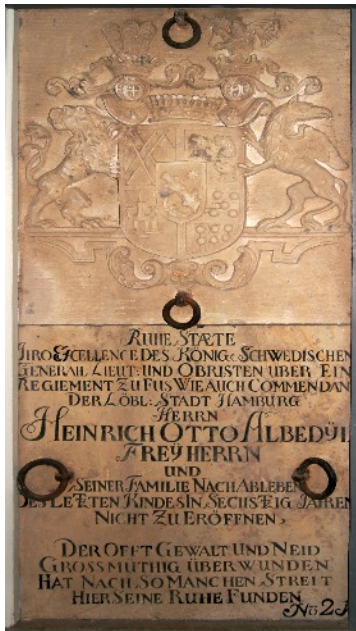 RUHE STÆTE
IHRO EXCELLENCE DES KÖNIG: SCHWEDISCHEN
GENERAHL LIEUT: UND OBRISTEN UBER EIN
REGIEMENT ZU FUS WIE AUCH COMMENDAN
DER LÖBL: STADT HAMBURG
HERRN
HEINRICH OTTO ALBEDŸL
FREŸ HERRN
UND
SEINER FAMILIE NACH ABLEBEN
DES LETZTEN KINDES IN SECHSTZIG JAHREN
NICHT ZU ERÖFFNEN,
DER OFFT GEWALT UND NEID
GROSSMÜTHIG ÜBERWUNDEN
HAT NACH SO MANCHEN STREIT
HIER SEINE RUHE FUNDEN
No 2